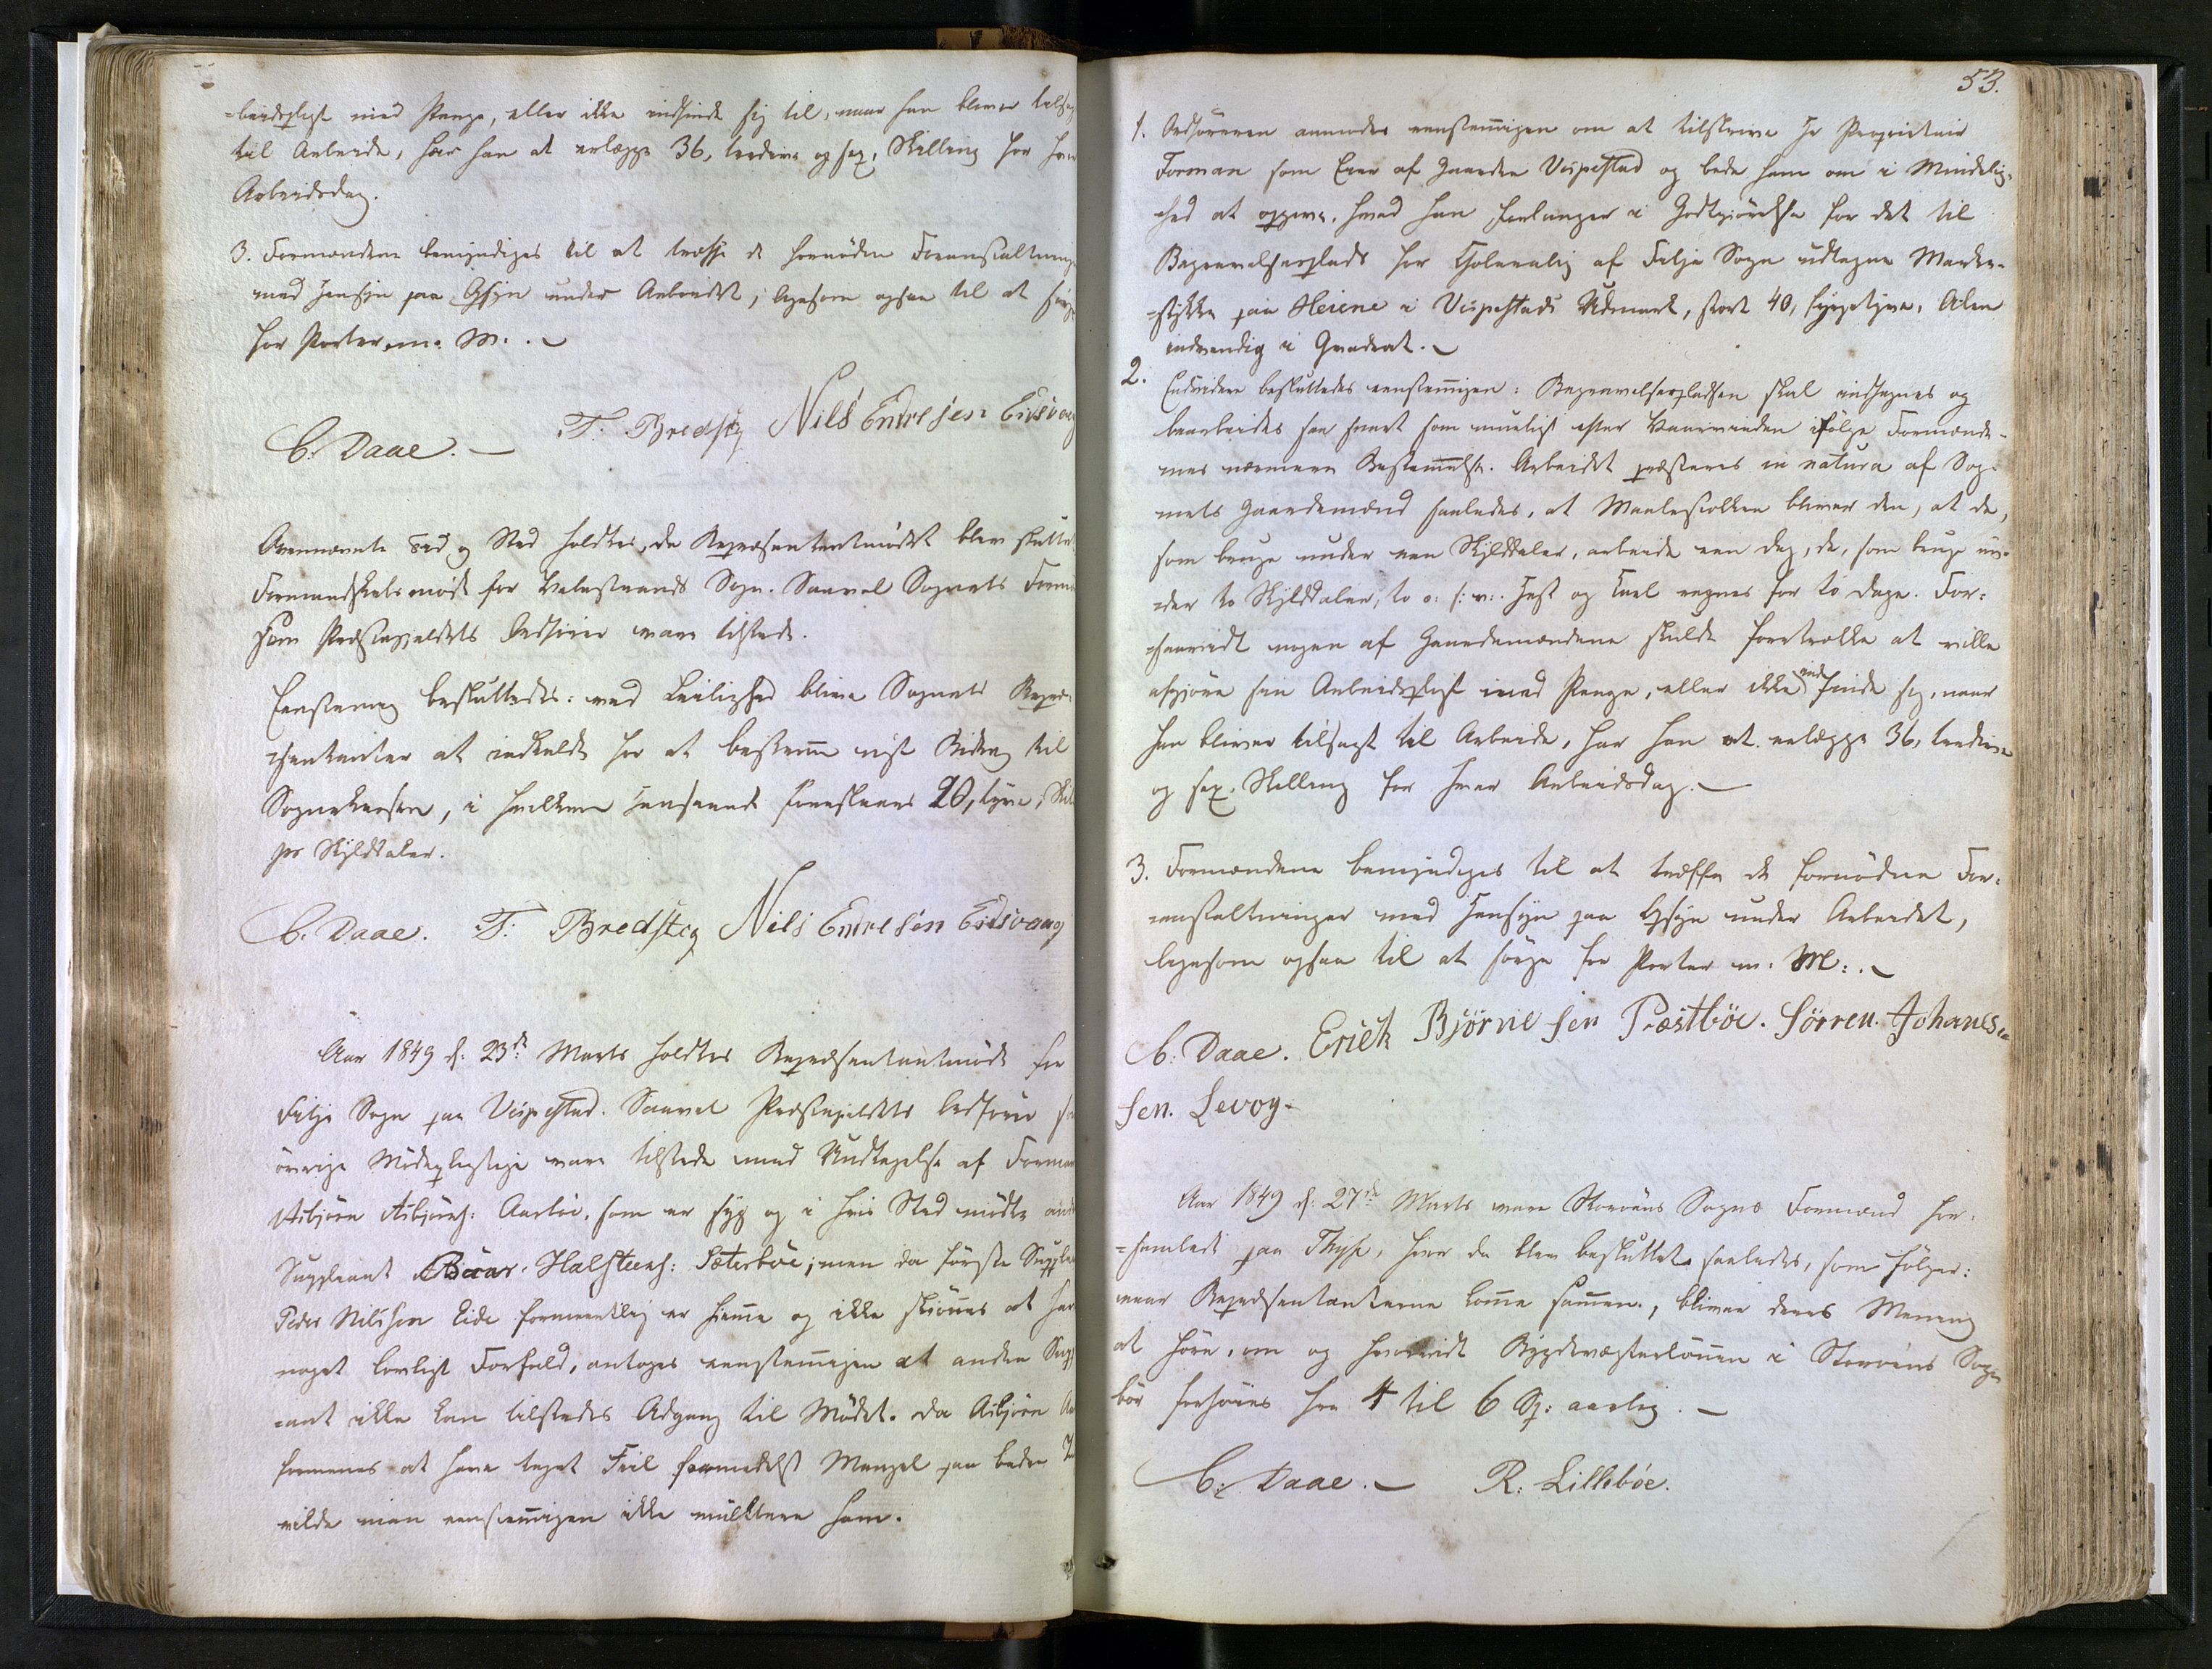 =beidspligt med Penge, eller ikke indfinde sig til, naar han bliver tilsagt
til Arbeide, har han at erlægge 36, tredive og sex, Skilling for hver
Arbeidsdag.
3. Formændene bemyndiges til at træffe de fornødne Foranstaltninger
med Hensyn paa Opsyn under Arbeidet, ligesom ogsaa til at sørge
for Porter m. M. .
C. Daae. — T: Bredsteg Nils Endresen Eidsvaag
Ovennævnte Tid og Sted holdtes, da Repræsentantmødet blev sluttet
Formandskabsmøde for Valestrands Sogn. Saavel Sognets Formænd
som Præstegjeldets Ordfører vare tilstede.
Eenstemmig besluttedes: ved Leilighed blive Sognets Repræ-
=sentanter at indkalde for at bestemme vist Bidrag til
Sognekassen, i hvilken Henseende foreslaaes 20, tyve, Skill
pr Skylddaler.
C. Daae. T: Bredsteg Nils Endresen Eidsvaag
Aar 1849 d: 23de Marts holdtes Repræsentantmøde for
Fitje Sogn paa Vispestad. Saavel Præstegjeldets Ordfører som
øvrige Mødepligtige vare tilstede med Undtagelse af Formand
Asbjørn Asbjørns: Aarbøe, som er syg og i hvis Sted mødte anden
Suppleant Baar Halsteens: Sæterbøe; men da første Supplea
Peder Nilssen Eide formeentlig er hjemme og ikke skjønnes at have
noget lovligt Forfald, antoges eenstemmigen at anden Supple
=ant ikke kan tilstedes Adgang til Mødet. Da Asbjørn
formenes at have taget Feil formedelst Mangel paa bedre
vilde man eenstemmigen ikke mulktere ham.
53.
1. Ordføreren anmodes eenstemmigen om at tilskrive Hr Proprietair
Forman som Eier af Gaarden Vispestad og bede ham om i Mindelig-
=hed at opgive, hvad han forlanger i Godtgjørelse for det til
Begravelsesplads for Choleralig af Fitje Sogn udtagne Marke-
=stykke paa Heiene i Vispestads Udmark, stort 40, fyrgetyve, Alen
indvendig i Qvadrat.
2. Endvidere besluttedes eenstemmigen: Begravelsespladsen skal indhegnes og
bearbeides saa snart som mueligt efter Vaarvinden ifølge Formænde-
nes nærmere Bestemmelse. Arbeidet præsteres in natura af Sog-
nets Gaardmænd saaledes, at Maalestokken bliver den, at de,
som bruge under een Skylddaler, arbeide een Dag, de, som bruge un-
=der to Skylddaler, to o: s: v:. Hest og Karl regnes for to Dage. For-
=saavidt nogen af Gaardmændene skulde foretrække at ville
afgjøre sin Arbeidspligt med Penge, eller ikke indfinde sig, naar
han bliver tilsagt til Arbeide, har han at erlægge 36, tredive
og sex, Skilling for hver Arbeidsdag. —
3. Formændene bemyndiges til at træffe de fornødne For-
=anstaltninger med Hensyn paa Opsyn under Arbeidet,
ligesom ogsaa til at sørge for Porter m. M: .
C. Daae. Erick Bjørnesen Præstbøe. Sørren Johanes=
sen. Levog.
Aar 1849 d: 27de Marts vare Storøens Sogns Formænd for-
=samlede paa Thyse, hvor da blev besluttet saaledes, som følger:
naar Repræsentanterne komme sammen, bliver deres Mening
at høre, om og hvorvidt Bygdevægterlønnen i Storøens Sogn
bør forhøies fra 4 til 6 Sp: aarlig. —
C. Daae. — R. Lillebøe.